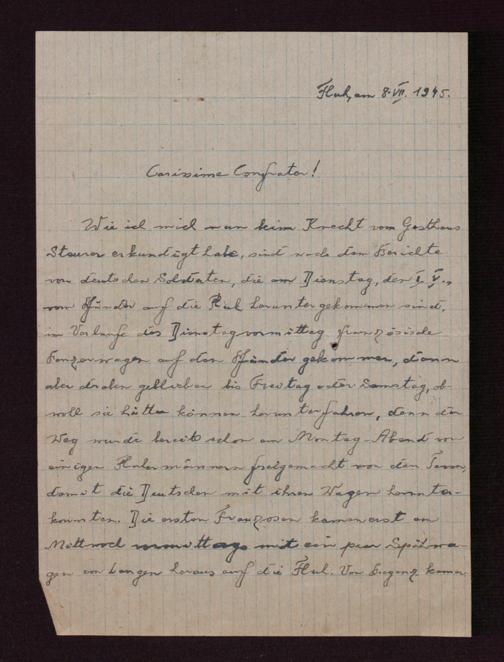 Fluh, am 8. VII. 1945.
Carissime Confrater!
Wie ich mich nun beim Knecht vom Gasthaus
Steurer erkundigt habe, sind nach dem Berichte
von deutschen Soldaten, die am Dienstag, den 1. V.,
vom Pfänder auf die Fluh heruntergekommen sind,
im Verlaufe des Dienstagvormittag französische
Panzerwagen auf den Pfänder gekommen, dann
aber droben geblieben bis Freitag oder Samstag, ob-
woll sie hätten können herunterfahren, denn der
Weg wurde bereits schon am Montag-Abend von
einigen Fluhermännern freigemacht von den
damit die Deutschen mit ihren Wagen herunter-
konnten. Die ersten Franzosen kamen erst am
Mittwoch vormittags mit ein paar Spähwa-
gen von Langen heraus auf die Fluh. Von Bregenz kamen